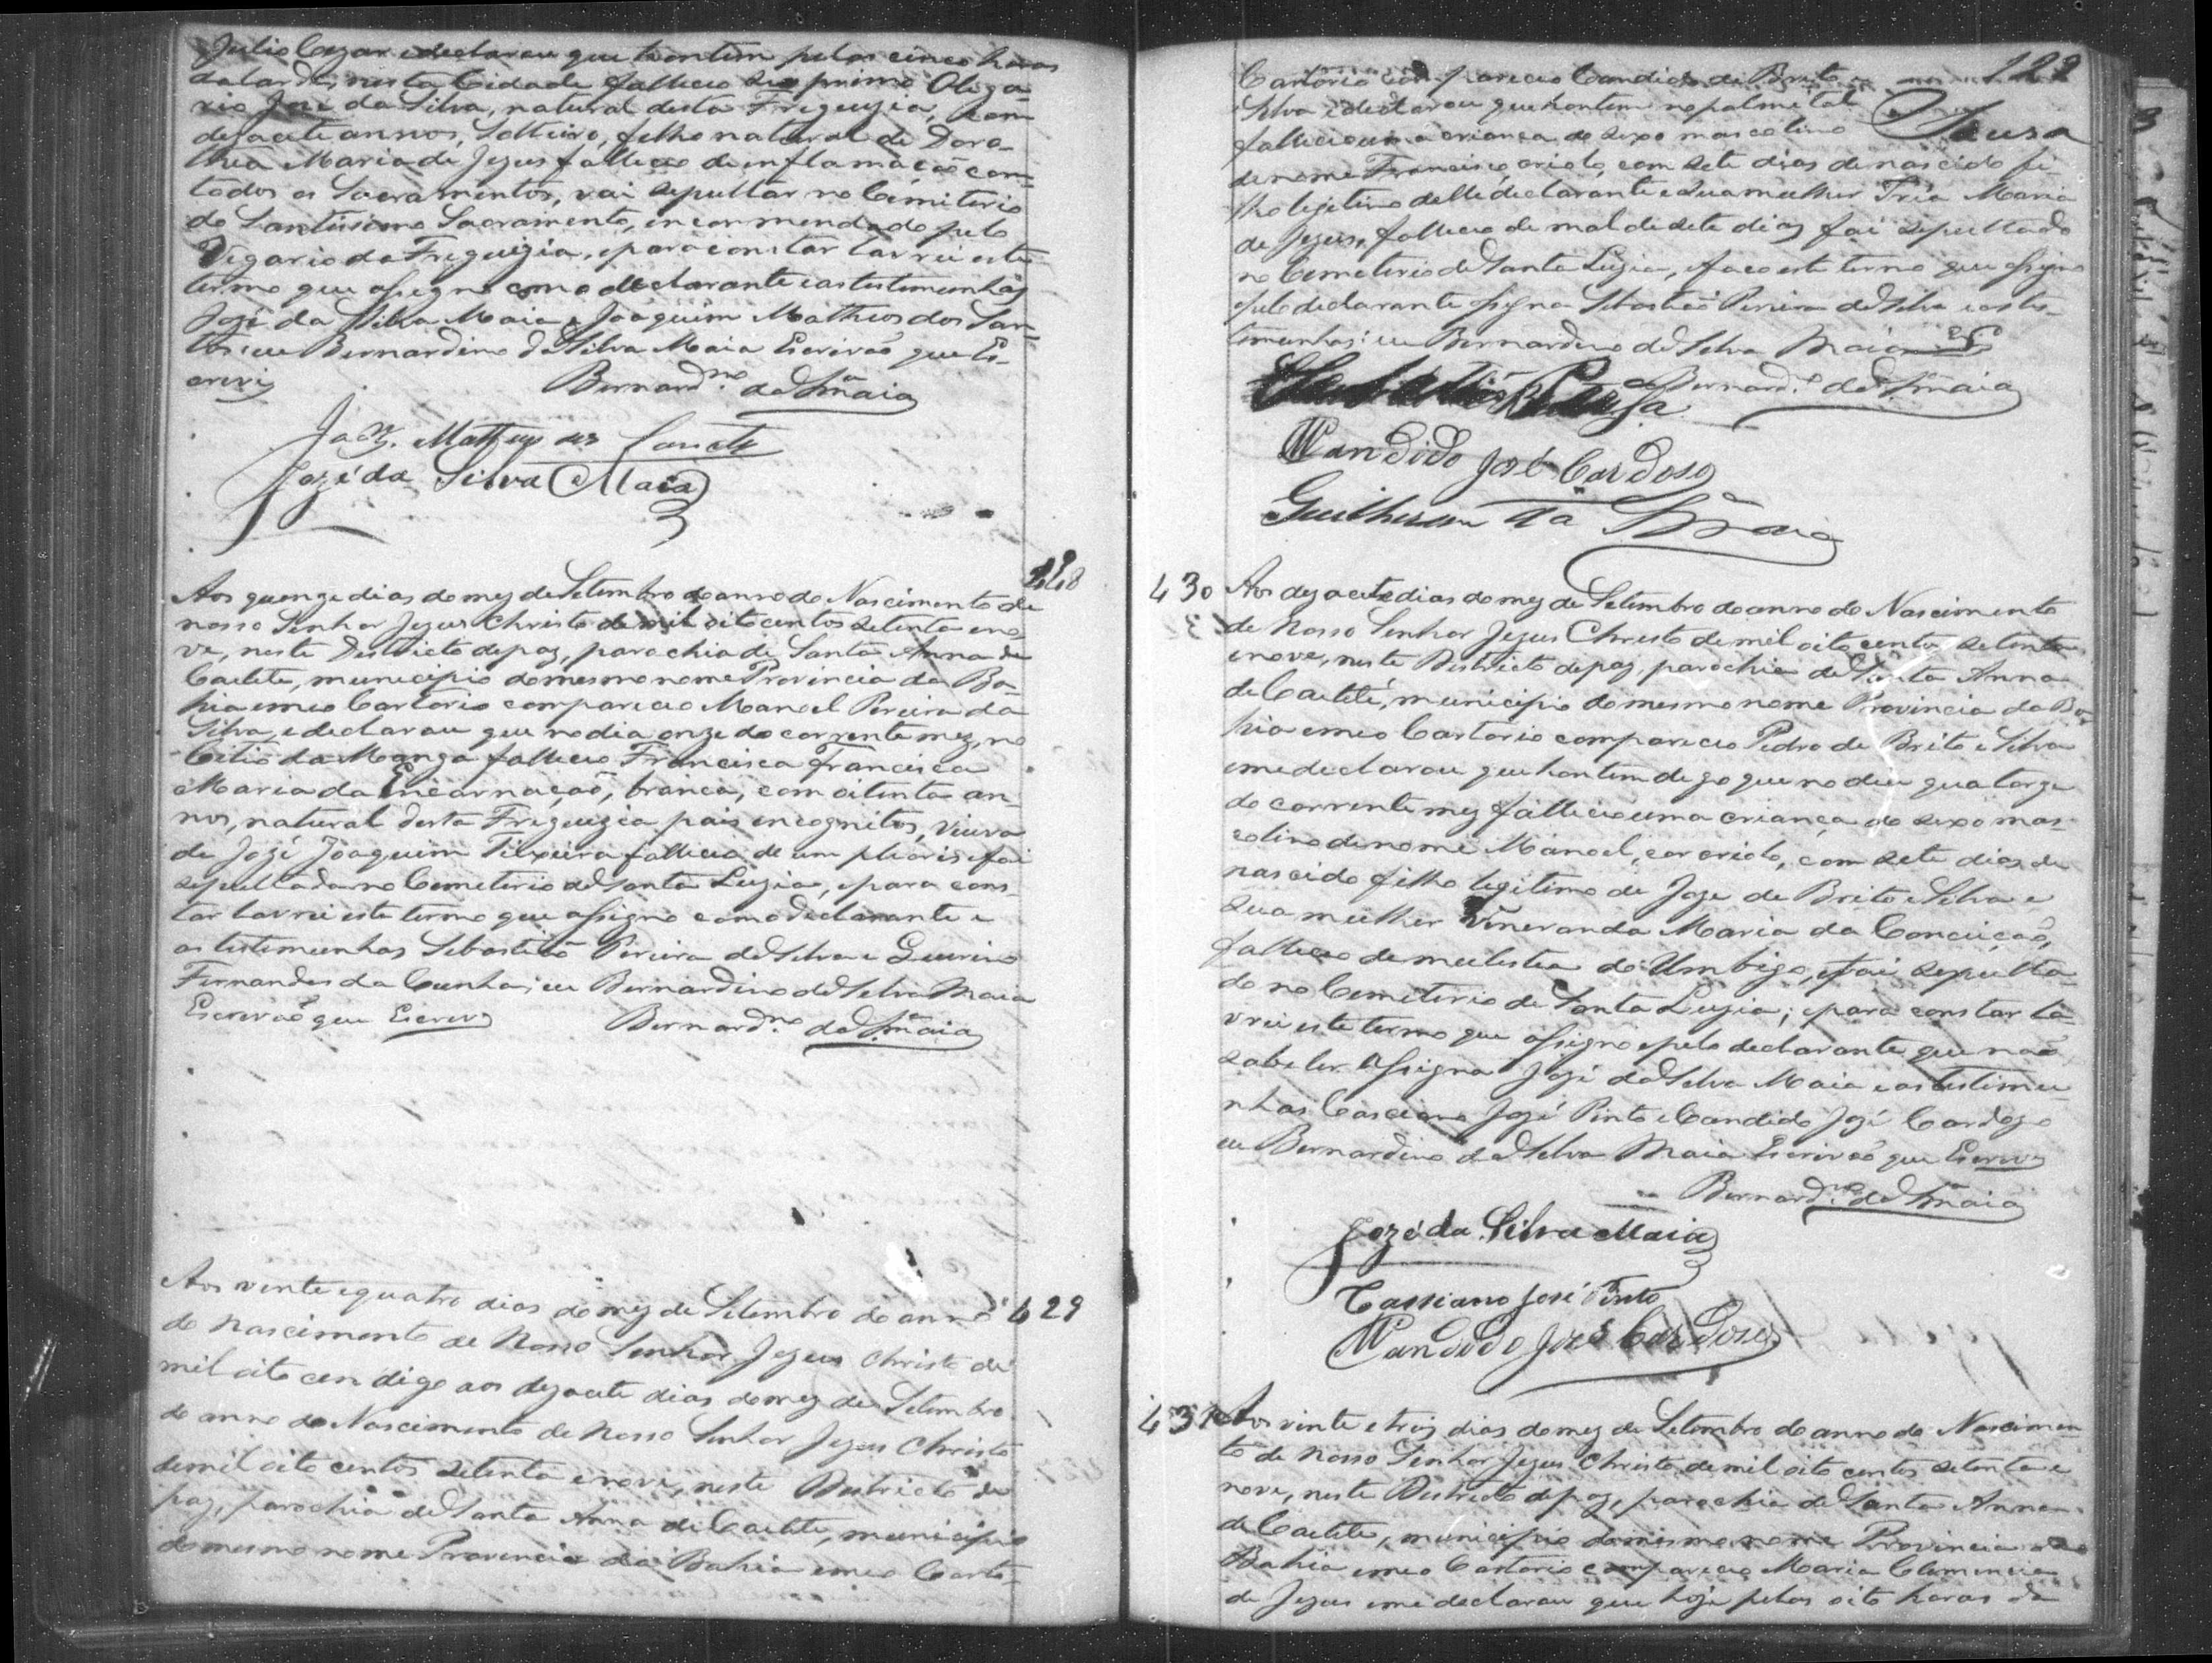 Julio Cezar e declarou que hontem pelas cinco horas
da tarde, nesta Cidade falleceo seo primo Olega-
rio José da Silva, natural desta Freguezia, com
dezacete annos, Solteiro, filho natural de Doro-
thea Maria de Jezus falleceo de inflamação com
todos os Sacramentos, vai sepultar no Cemiterio
do Santissimo Sacramento, encommendado pelo
Vegario da Freguizia, e para constar lavrei este
termo que assigno com o declarante e as testimunhas
José da Silva Maia e Joaquim Matheos dos San-
tos: eu Bernardino da Silva Maia Escrivaõ que Es-
crevi
Bernardno da Sa Maia
Joaqm. Matheus dos Santos
Jozé da Silva Maia
428
Aos quenze dias do mez de Setembro do anno do Nascimento de
nosso Senhor Jezus Christo de mil oitocentos Setenta e no-
ve, neste Destricto de paz, parochia de Santa Anna de
Caeteté, municipio do mesmo nome Provincia da Ba-
hia em meo Cartorio compareceo Manoel Pereira da
Silva, e declarou que no dia onze do corrente mez, no
Citio da Manga falleceo Francisca Francisca
Maria da Encarnaçaõ, branca, com oitenta an-
nos, natural desta Freguizia pais encognitos, viuva
de Jozé Joaquim Teixeira falleceo de um pleoris e foi
sepultada no Cemeterio de Santa Luzia, e para cons-
tar lavrei este termo que assigno com o declarante e
as testimunhas Sebastiaõ Pereira da Silva e Quirino
Fernandes da Cunha; eu Bernardino da Silva Maia
Escrivaõ que Escrevi
Bernardno da Sa Maia
429
Aos vente e quatro dias do mez de Setembro do anno
do Nascimento de Nosso Senhor Jezus Christo de
mil oito cen digo aos dezacete dias do mez de Setembro
do anno do Nascimento de Nosso Senhor Jezus Christo
de mil oito centos setenta e nove, neste Districto de
paz, parochia de Santa Anna de Caeteté, municipio
do mesmo nome Provincia da Bahia em meo Carto-
122
Cartorio compareceo Candido de Brito
Silva e declarou que hontem no palmital
Sousa
falleceo uma criança do sexo mascolino
de nome Francisco, criolo, com sete dias de nascido fi-
lho legetimo delle declarante e sua mulher Maria
de Jezus, falleceo de mal de sete dias foi sepultado
no Cemeterio de Santa Luzia, e faço este termo que assigno
e pelo declarante assigna Sebastiaõ Pereira da Silva e as tes-
temunhas: eu Bernardino da Silva Maia
Bernardo da Sa Maia
Candido José Cardoso
Guilherme da Sa Maia
430
Aos dezacete dias do mez de Setembro do anno do Nascimento
de Nosso Senhor Jezus Christo de mil oito centos setenta
e nove, neste Districto de paz, parochia de Santa Anna
de Caeteté, municipio do mesmo nome Provincia da Ba-
hia em meo Cartorio compareceo Pedro de Brito e Silva
e me declarou que hontem digo que no dia quatorze
do corrente mez falleceo uma criança do sexo mas-
colino de nome Manoel, cor criolo, com sete dias de
nascido filho legitimo de Joze de Brito e Silva e
sua mulher Veneranda Maria da Conceiçaõ,
falleceo de mulestia do Umbigo, e foi sepulta-
do no Cemeterio de Santa Luzia; e para constar la-
vrei este termo que assigno e pelo declarante que naõ
sabe ler assigna Jozé da Silva Maia e as testimu-
nhas Casciano Jozé Pinto e Candido Jozé Cardozo
eu Bernardino da Silva Maia Escrivaõ que Escrevi
Bernardno da Sa Maia
Jozé da Silva Maia
Cassiano José Pinto
Candido José Cardoso
431
Aos vinte e trez dias do mez de Setembro do anno do Nascimen-
to de Nosso Senhor Jezus Christo de mil oito centos setenta e
nove, neste Destricto de paz, parochia de Santa Anna
de Caeteté, municipio do mesmo nome Provincia da
Bahia em meo Cartorio compareceo Maria Clemencia
de Jezus e me declarou que hoje pelas oito horas da